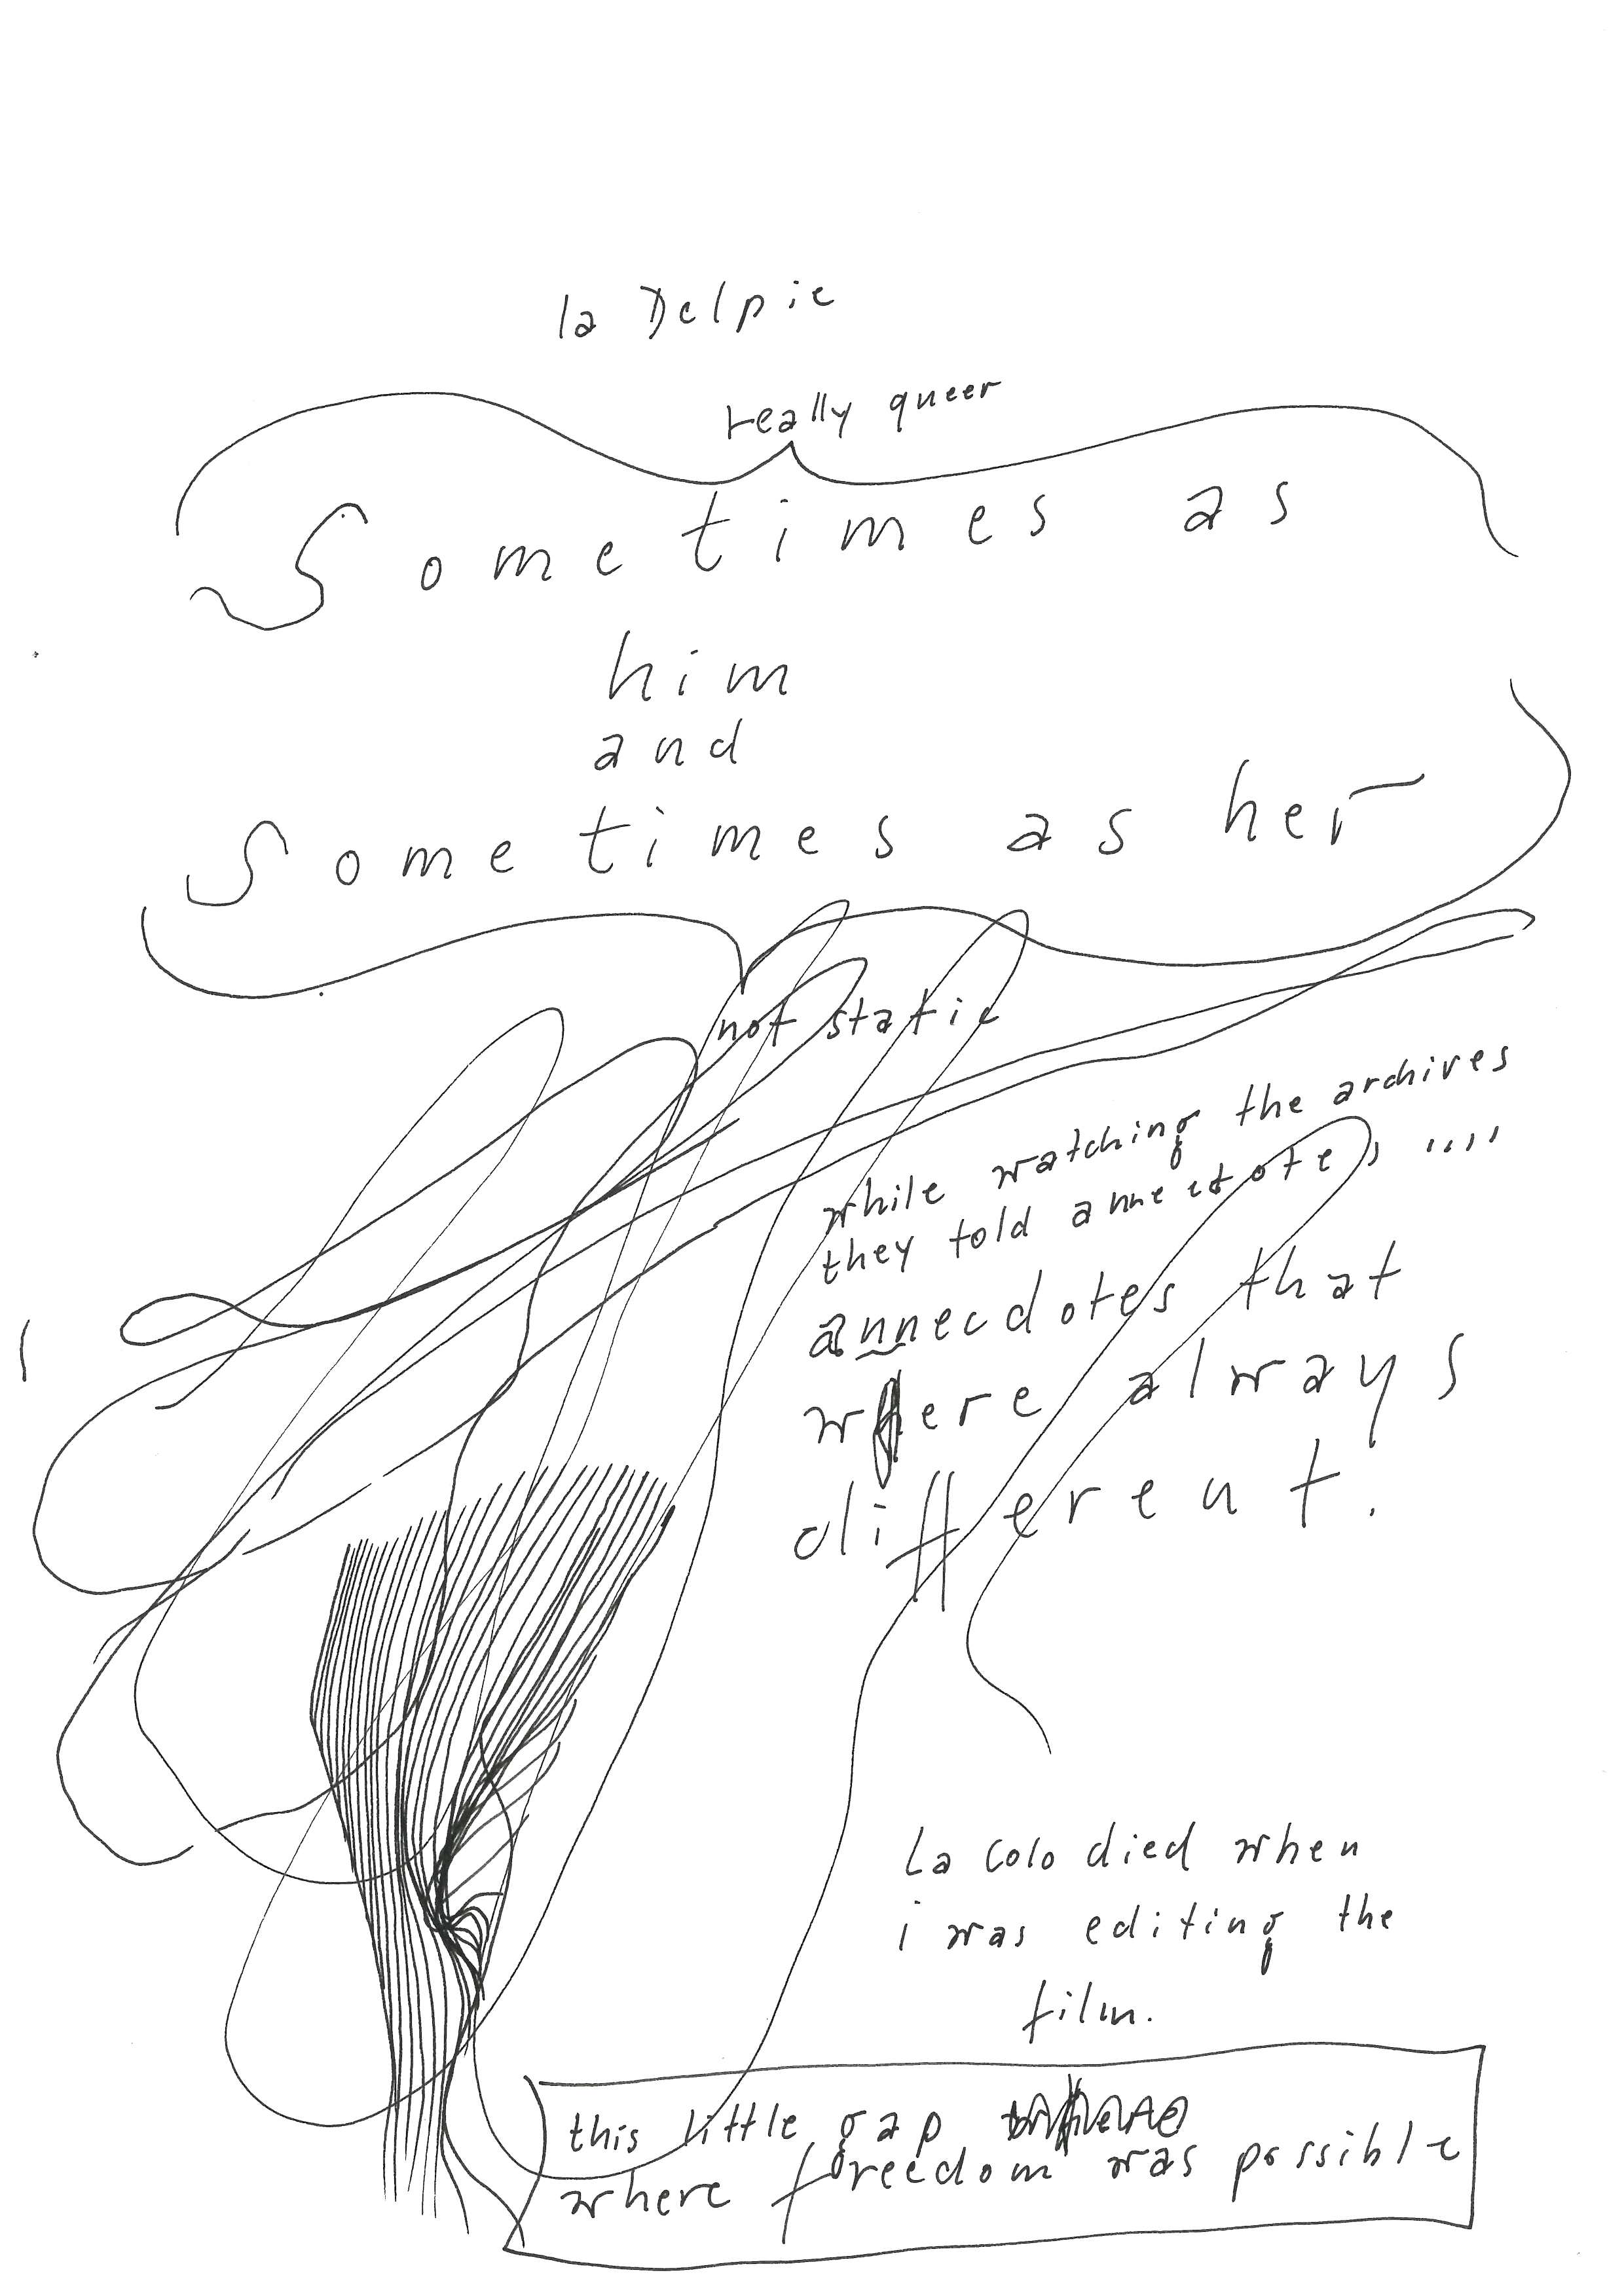 la Delpie
really queer
Sometimes as
him
and
Sometimes as her
not static
while watching the archives
they told annecdotes ....
annecdotes that
where always
different.
La Colo died when
i was editing the
film.
this little gap
where freedom was possible